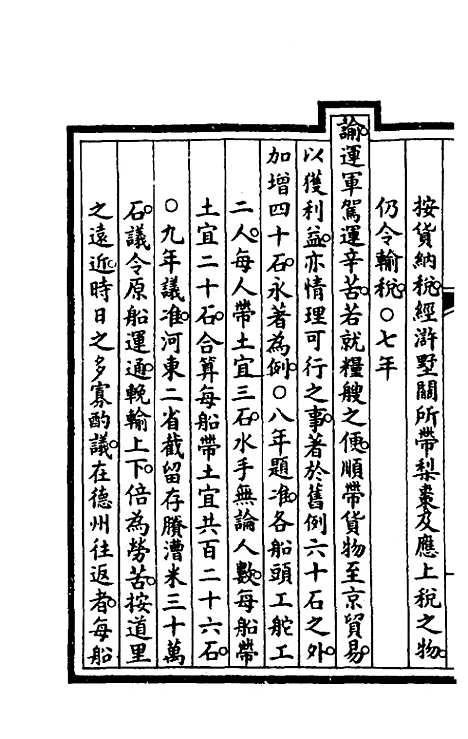 按貨納稅。經滸墅關所帶梨棗及應上稅之物。
仍令輸稅。○七年
諭。運軍駕運辛苦。若就糧艘之便。順帶貨物至京貿易。
以獲利益。亦情理可行之事。著於舊例六十石之外。
加增四十石。永著為例。○八年題准。各船頭工舵工
二人。每人帶土宜三石。水手無論人數。每船帶
土宜二十石。合算每船帶土宜共百二十六石。
○九年議准。河東二省截留存賸漕米三十萬
石。議令原船運通。輓輸上下。倍為勞苦。按道里
之遠近。時日之多寡酌議。在德州往返者。每船